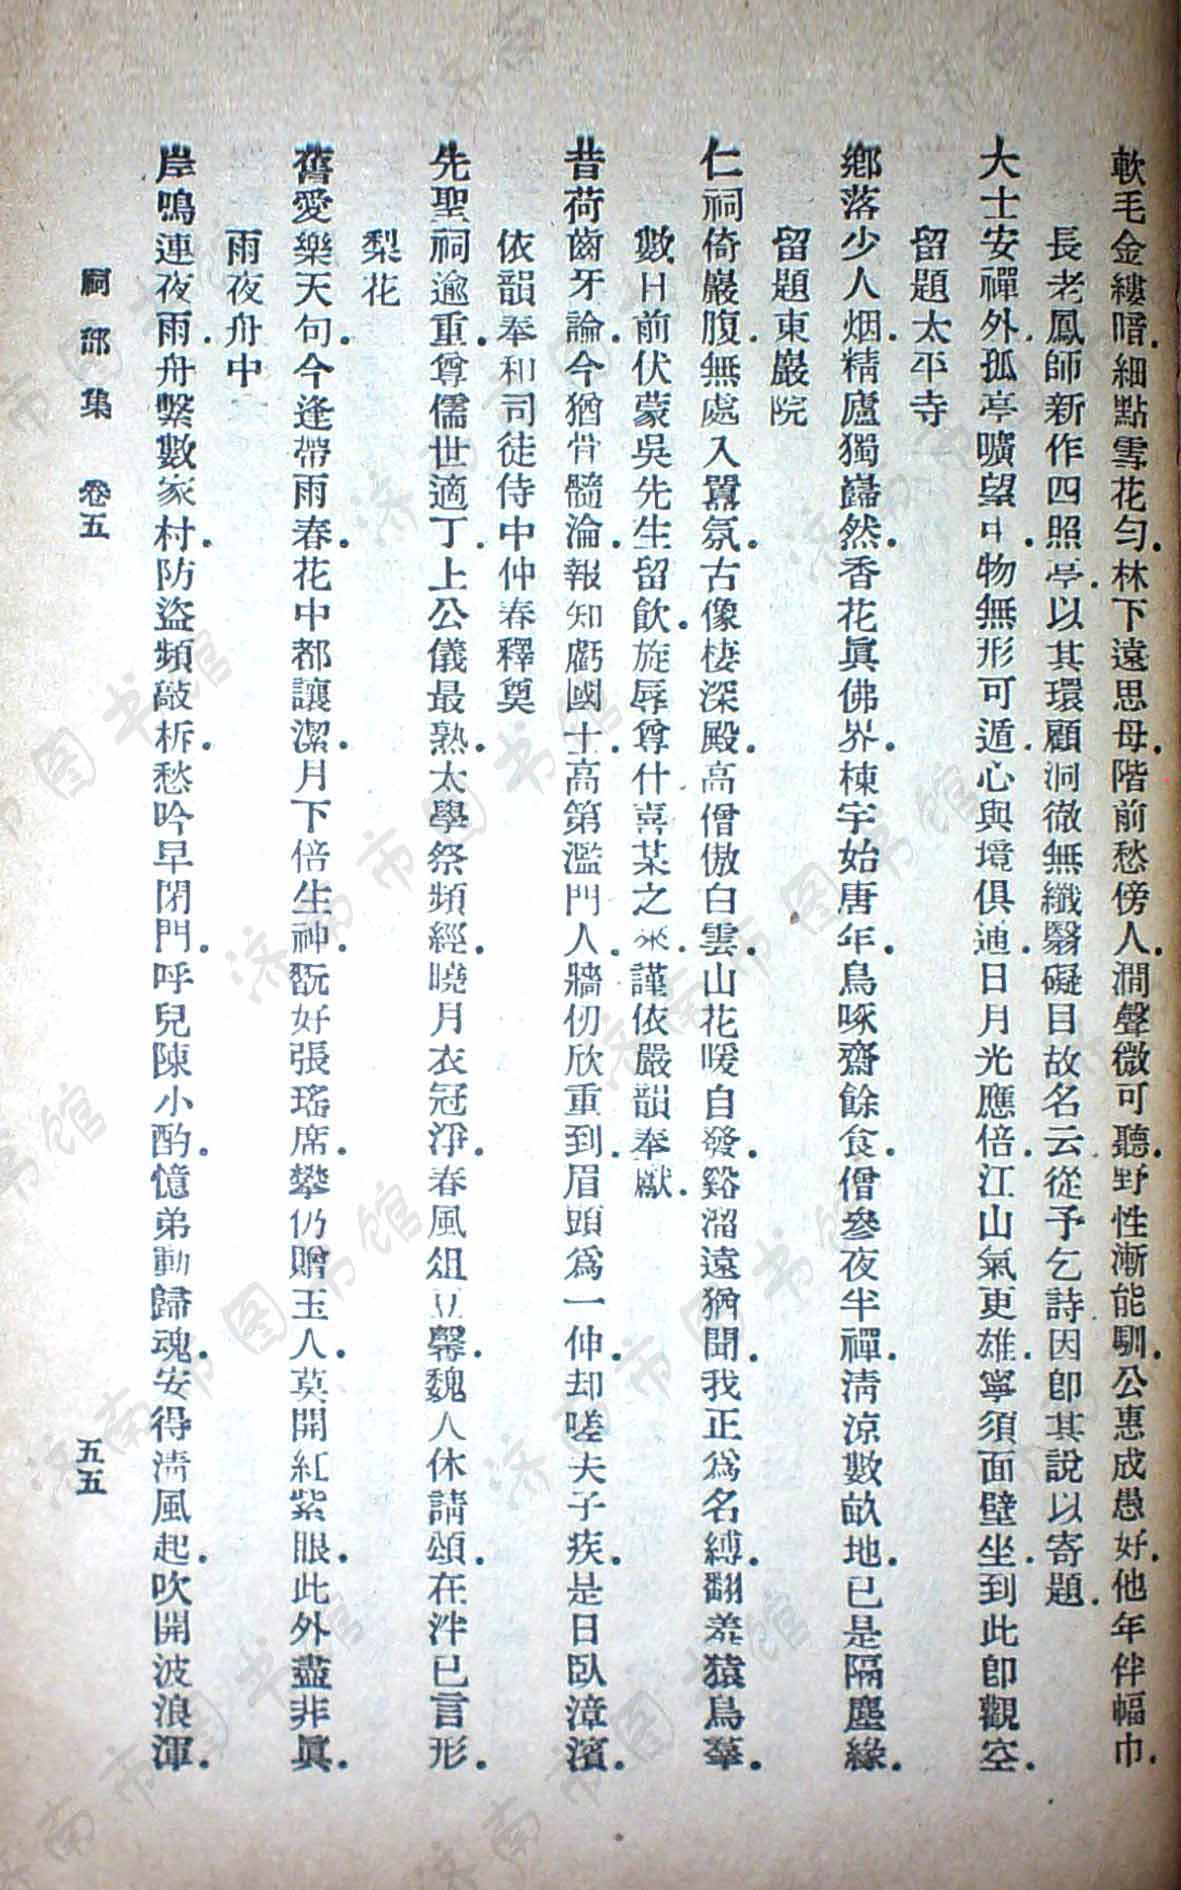 軟毛金縷暗.細點雪花勻.林下遠思母.階前愁傍人.澗聲微可聽.野性漸能馴.公惠成愚好.他年伴幅巾.
長老鳳師新作四照亭.以其環顧洞徹無纖翳礙目故名云從予乞詩因卽其說以寄題.
大士安禪外.孤亭曠望中.物無形可遁.心與境俱通.日月光應倍.江山氣更雄.寧須面壁坐.到此卽觀空.
留題太平寺
鄉落少人烟.精廬獨巋然.香花眞佛界.棟宇始唐年.鳥啄齋餘食.僧參夜半禪.淸涼數畝地.已是隔塵緣.
留題東巖院
仁祠倚巖腹.無處入囂氛.古像棲深殿.高僧傲白雲.山花暖自發.谿溜遠猶聞.我正爲名縛.翻羞猿鳥羣.
數日前伏蒙吳先生留飮.旋辱尊什喜某之來.謹依嚴韻奉獻.
昔荷齒牙論.今猶骨髓淪.報知虧國士.高第濫門人.牆仞欣重到.眉頭爲一伸.却嗟夫子疾.是日臥漳濱.
依韻奉和司徒侍中仲春釋奠
先聖祠逾重.尊儒世適丁.上公儀最熟.太學祭頻經.曉月衣冠淨.春風俎豆馨.魏人休請頌.在泮已言形.
梨花
舊愛樂天句.今逢帶雨春.花中都讓潔.月下倍生神.翫好張瑤席.攀仍贈玉人.莫開紅紫眼.此外盡非眞.
雨夜舟中
岸鳴連夜雨.舟繫數家村.防盜頻敲柝.愁吟早閉門.呼兒陳小酌.憶弟動歸魂.安得淸風起.吹開波浪渾.
祠部集 卷五
五五